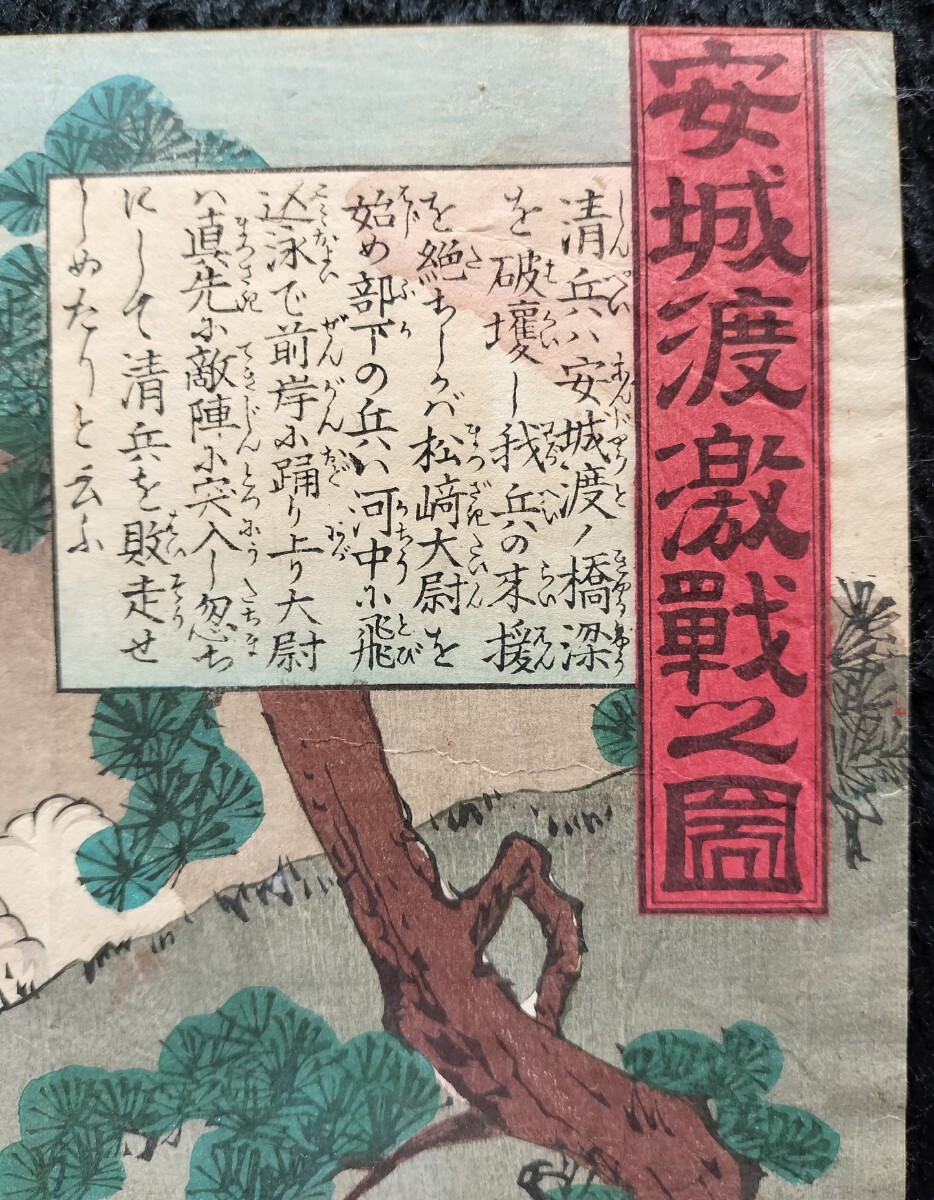 安城渡激戰之圖
清兵ハ安城渡ノ橋梁
を破壊し我兵の来援
を絶ちしバ松﨑大尉を
始め部下の兵ハ河中に飛
込泳で前岸に踊り上り大尉
ハ真先に敵陣に突入し忽ち
にして清兵を敗走せ
しめたりと云ふ